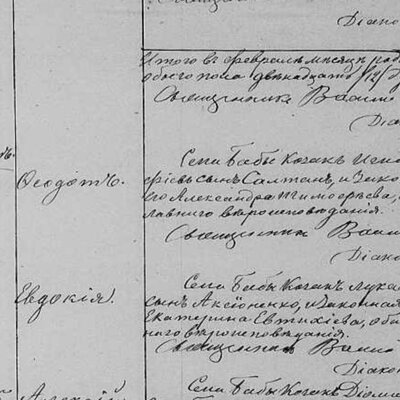 Діако
Итого въ февралѣ мѣсяцѣ
обоего пола двѣнадцать /12/
Священникъ Васи
Діа
Ѳеодотъ.
Села Бабы Козакъ
сынъ Салтанъ, и зако
его Александра Тимоѳеева,
славнаго вѣроисповѣданія.
Священникъ Васи
Діак
Евдокія.
Села Бабы Козакъ Лука
сынъ Аксіоненко, и законная
Екатерина Евтихіева, оба
наго вѣроисповѣданія.
Священникъ Васи
Діако
Алексій
Села Бабы Козакъ